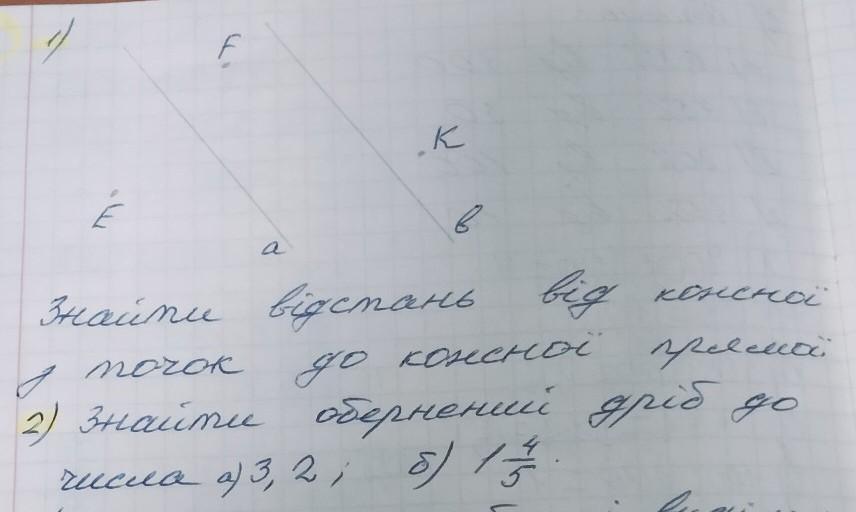 1)
F
K
E
a
в
Знайти відстань від кожної
з точок до кожної прямої.
2) Знайти обернений дріб до
числа а) 3,2; б) 1 4/5.